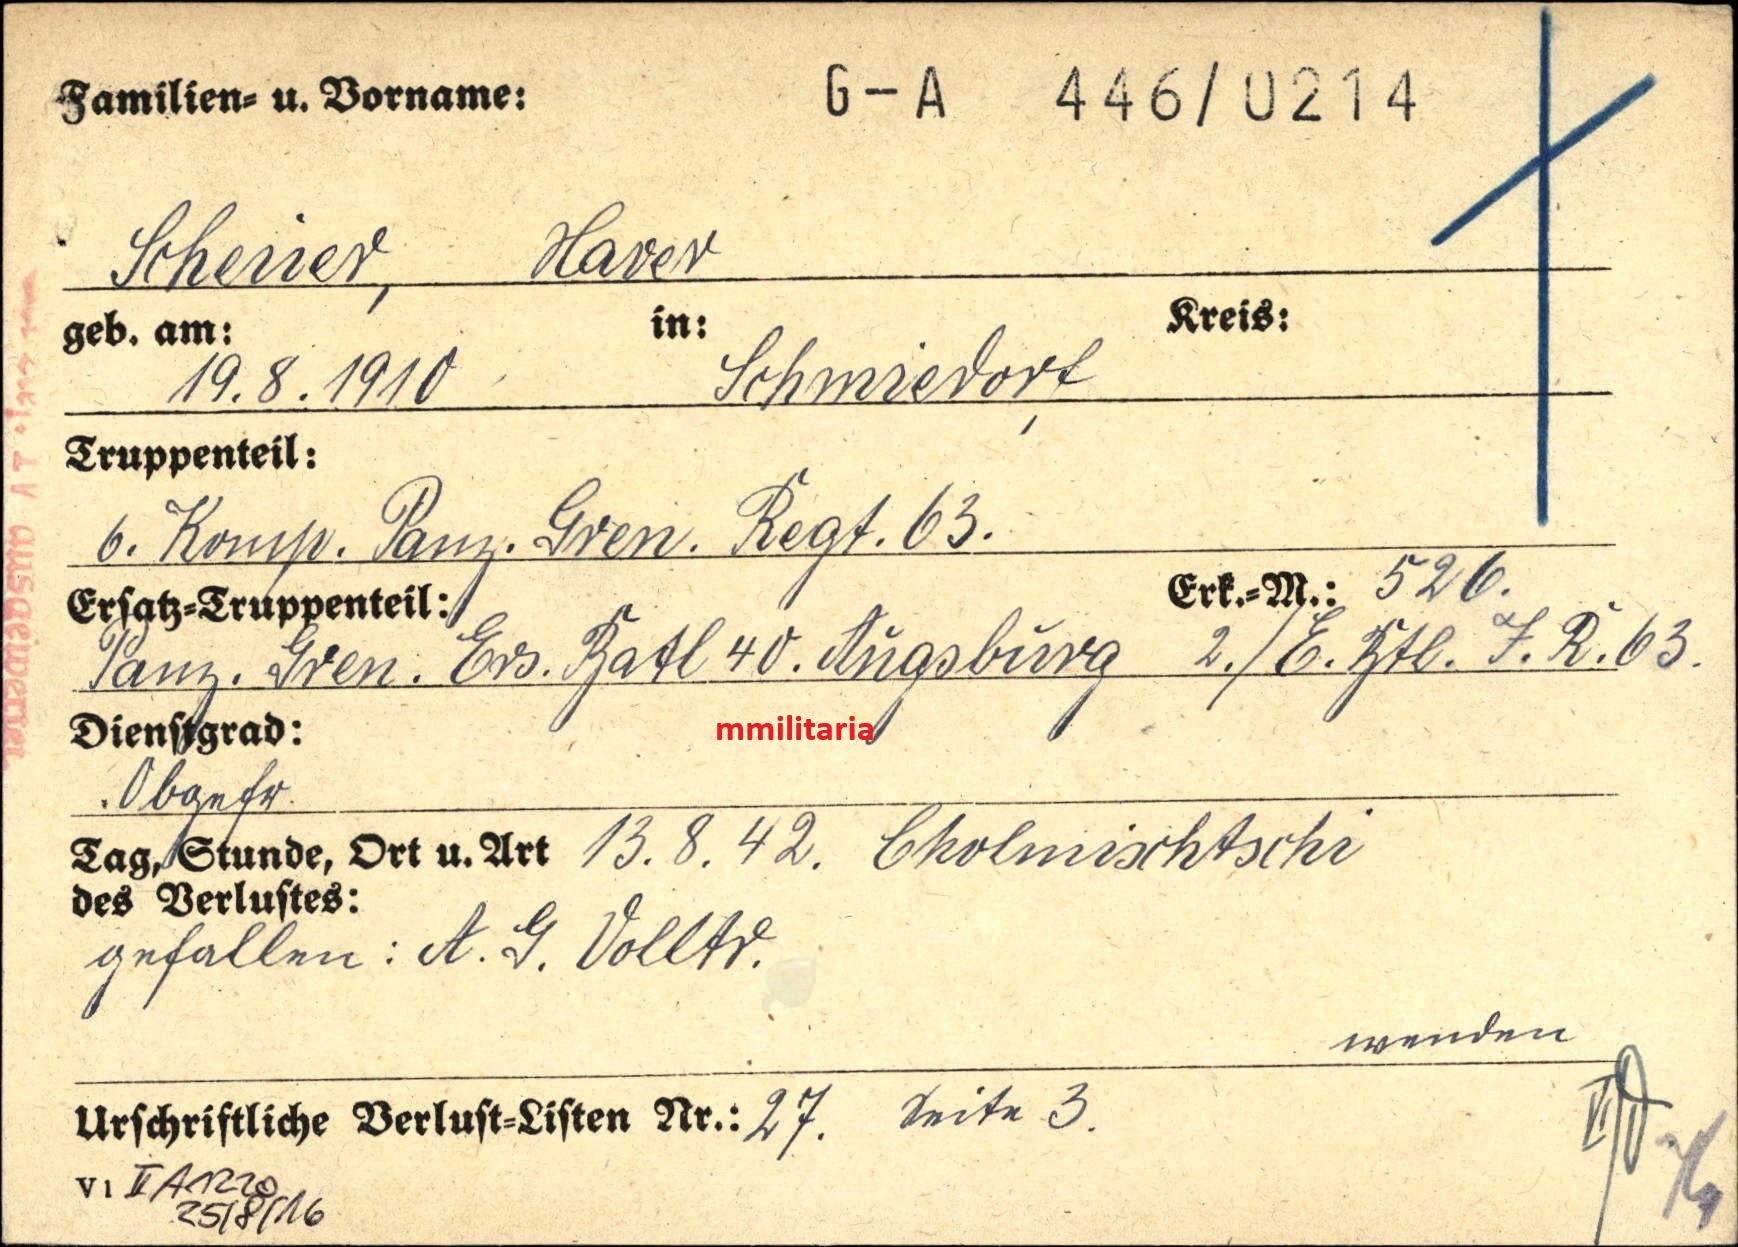 Familien- u. Vorname: G-A 446/U214
Scheuer, Xaver
geb. am: in: Kreis:
19.8.1910 Schmiedorf,
Truppenteil:
6. Komp. Panz. Gren. Regt. 63.
Ersatz-Truppenteil: Erk.-M.: 526.
Panz. Gren. Ers. Batl 40. Augsburg 2./E. Btl. I. R. 63.
Dienstgrad:
mmilitaria
Obgefr.
Tag, Stunde, Ort u. Art 13. 8. 42. Cholmischtschi
des Verlustes:
gefallen: A. G. Volltr.
wenden
Urschriftliche Verlust-Listen Nr.: 27. Seite 3.
V1 II A 1220
25/8/16